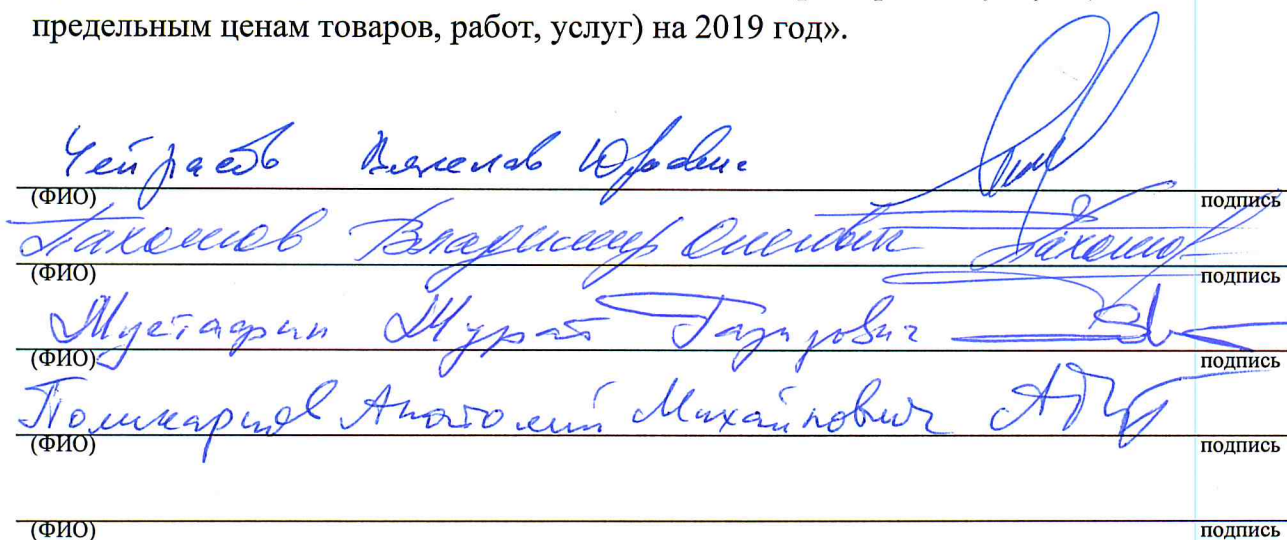 предельным ценам товаров, работ, услуг) на 2019 год».
Вячеслав Юрьевич
(ФИО) подпись
Пахомов Владимир Олегович Пахомов
(ФИО) подпись
Мустафин Мурат Газизович
(ФИО) подпись
Поликарпов Анатолий Михайлович
(ФИО) подпись
(ФИО) подпись